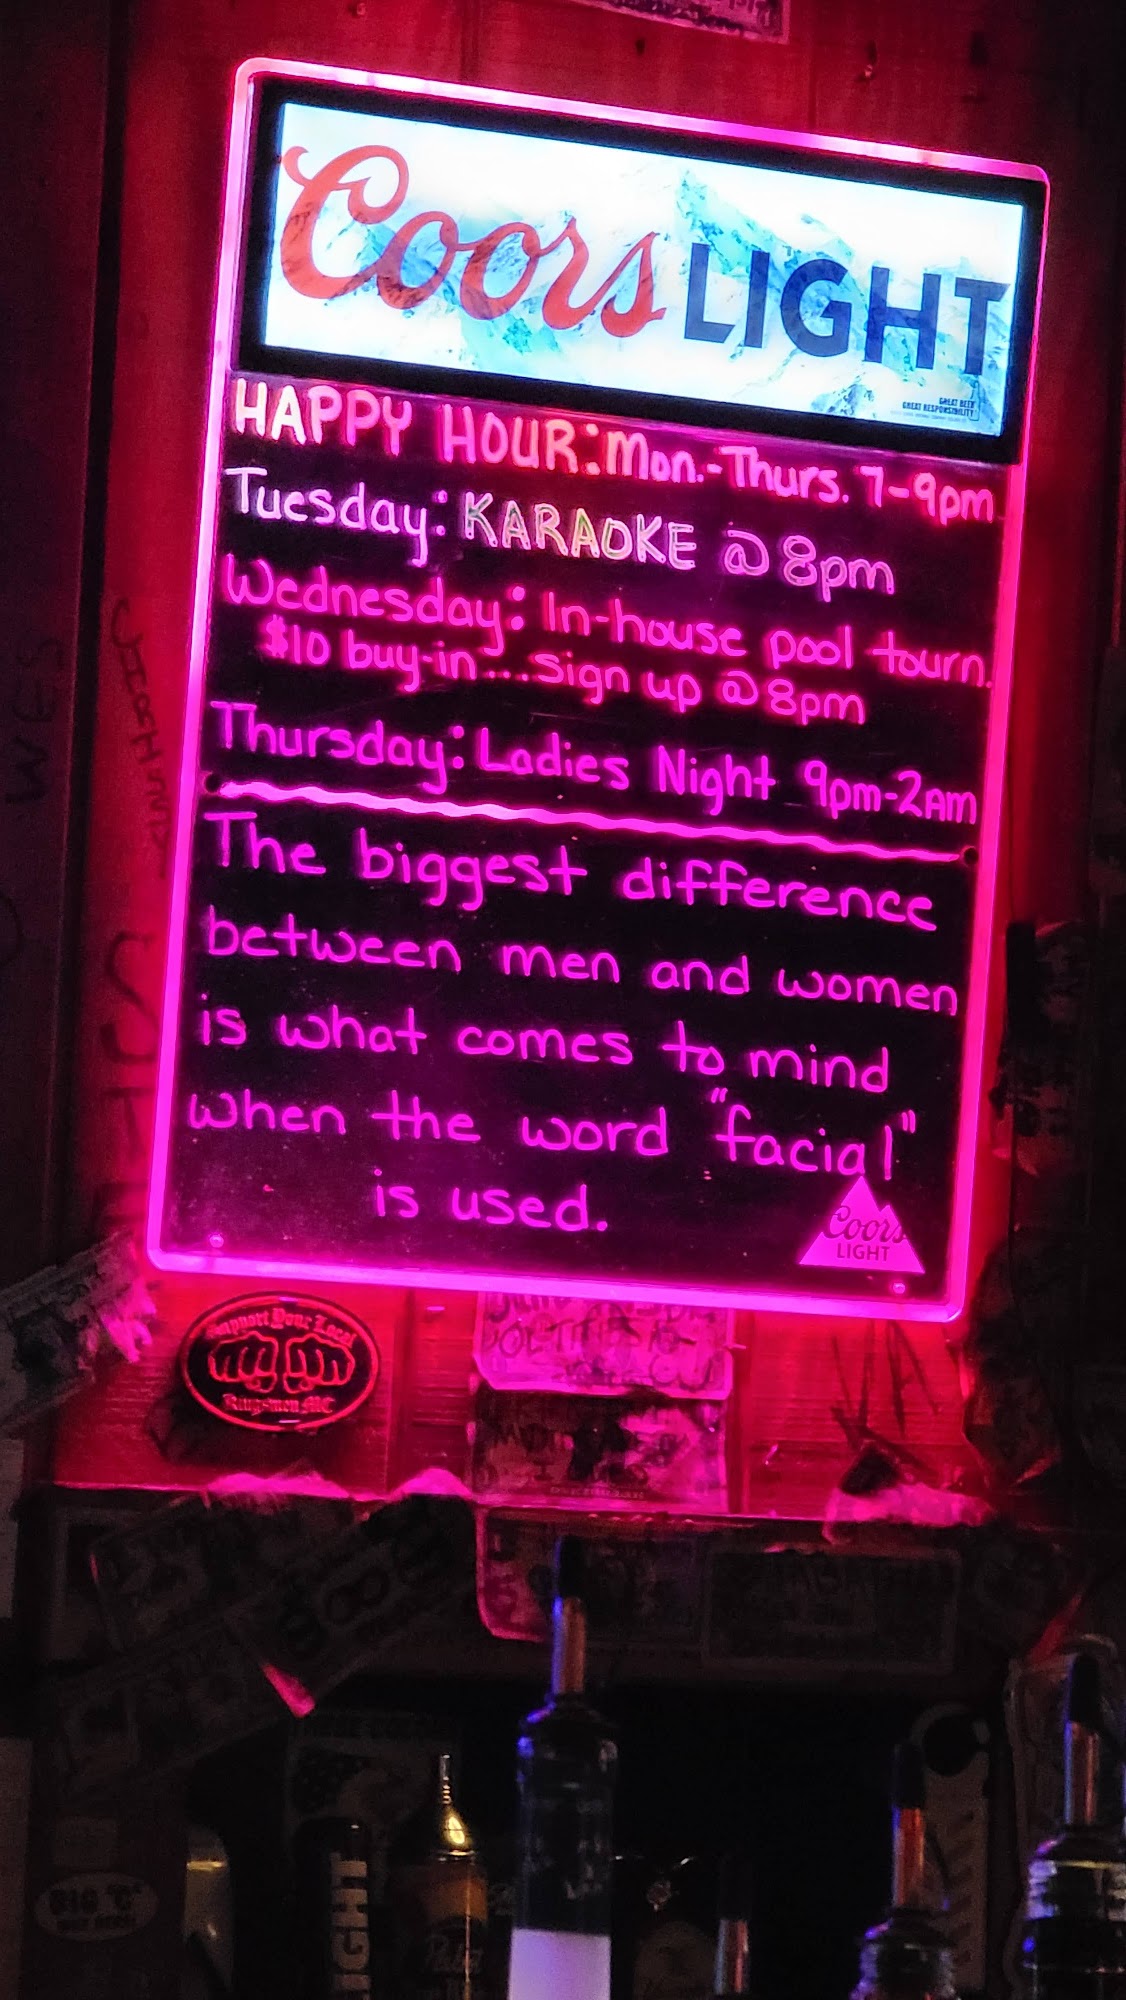 Coors LIGHT
GREAT BEER
GREAT RESPONSIBILITY
HAPPY HOUR: Mon.-Thurs. 7-9pm
Tuesday: KARAOKE @ 8pm
Wednesday: In-house pool tourn.
$10 buy-in... Sign up @ 8pm
Thursday: Ladies Night 9pm-2AM
The biggest difference
between men and women
is what comes to mind
when the word "facial"
is used.
Coors
LIGHT
Support Your Local
Kingsmen MC
BIG "C"